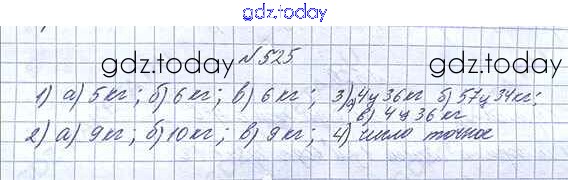 gdz.today
gdz.today
gdz.today
№525
1) а) 5кг; б) 6кг; в) 6кг; 3) а) 4ц 36кг б) 57ц 34кг;
в) 4ц 36кг
2) а) 9кг; б) 10кг; в) 9кг; 4) число точное